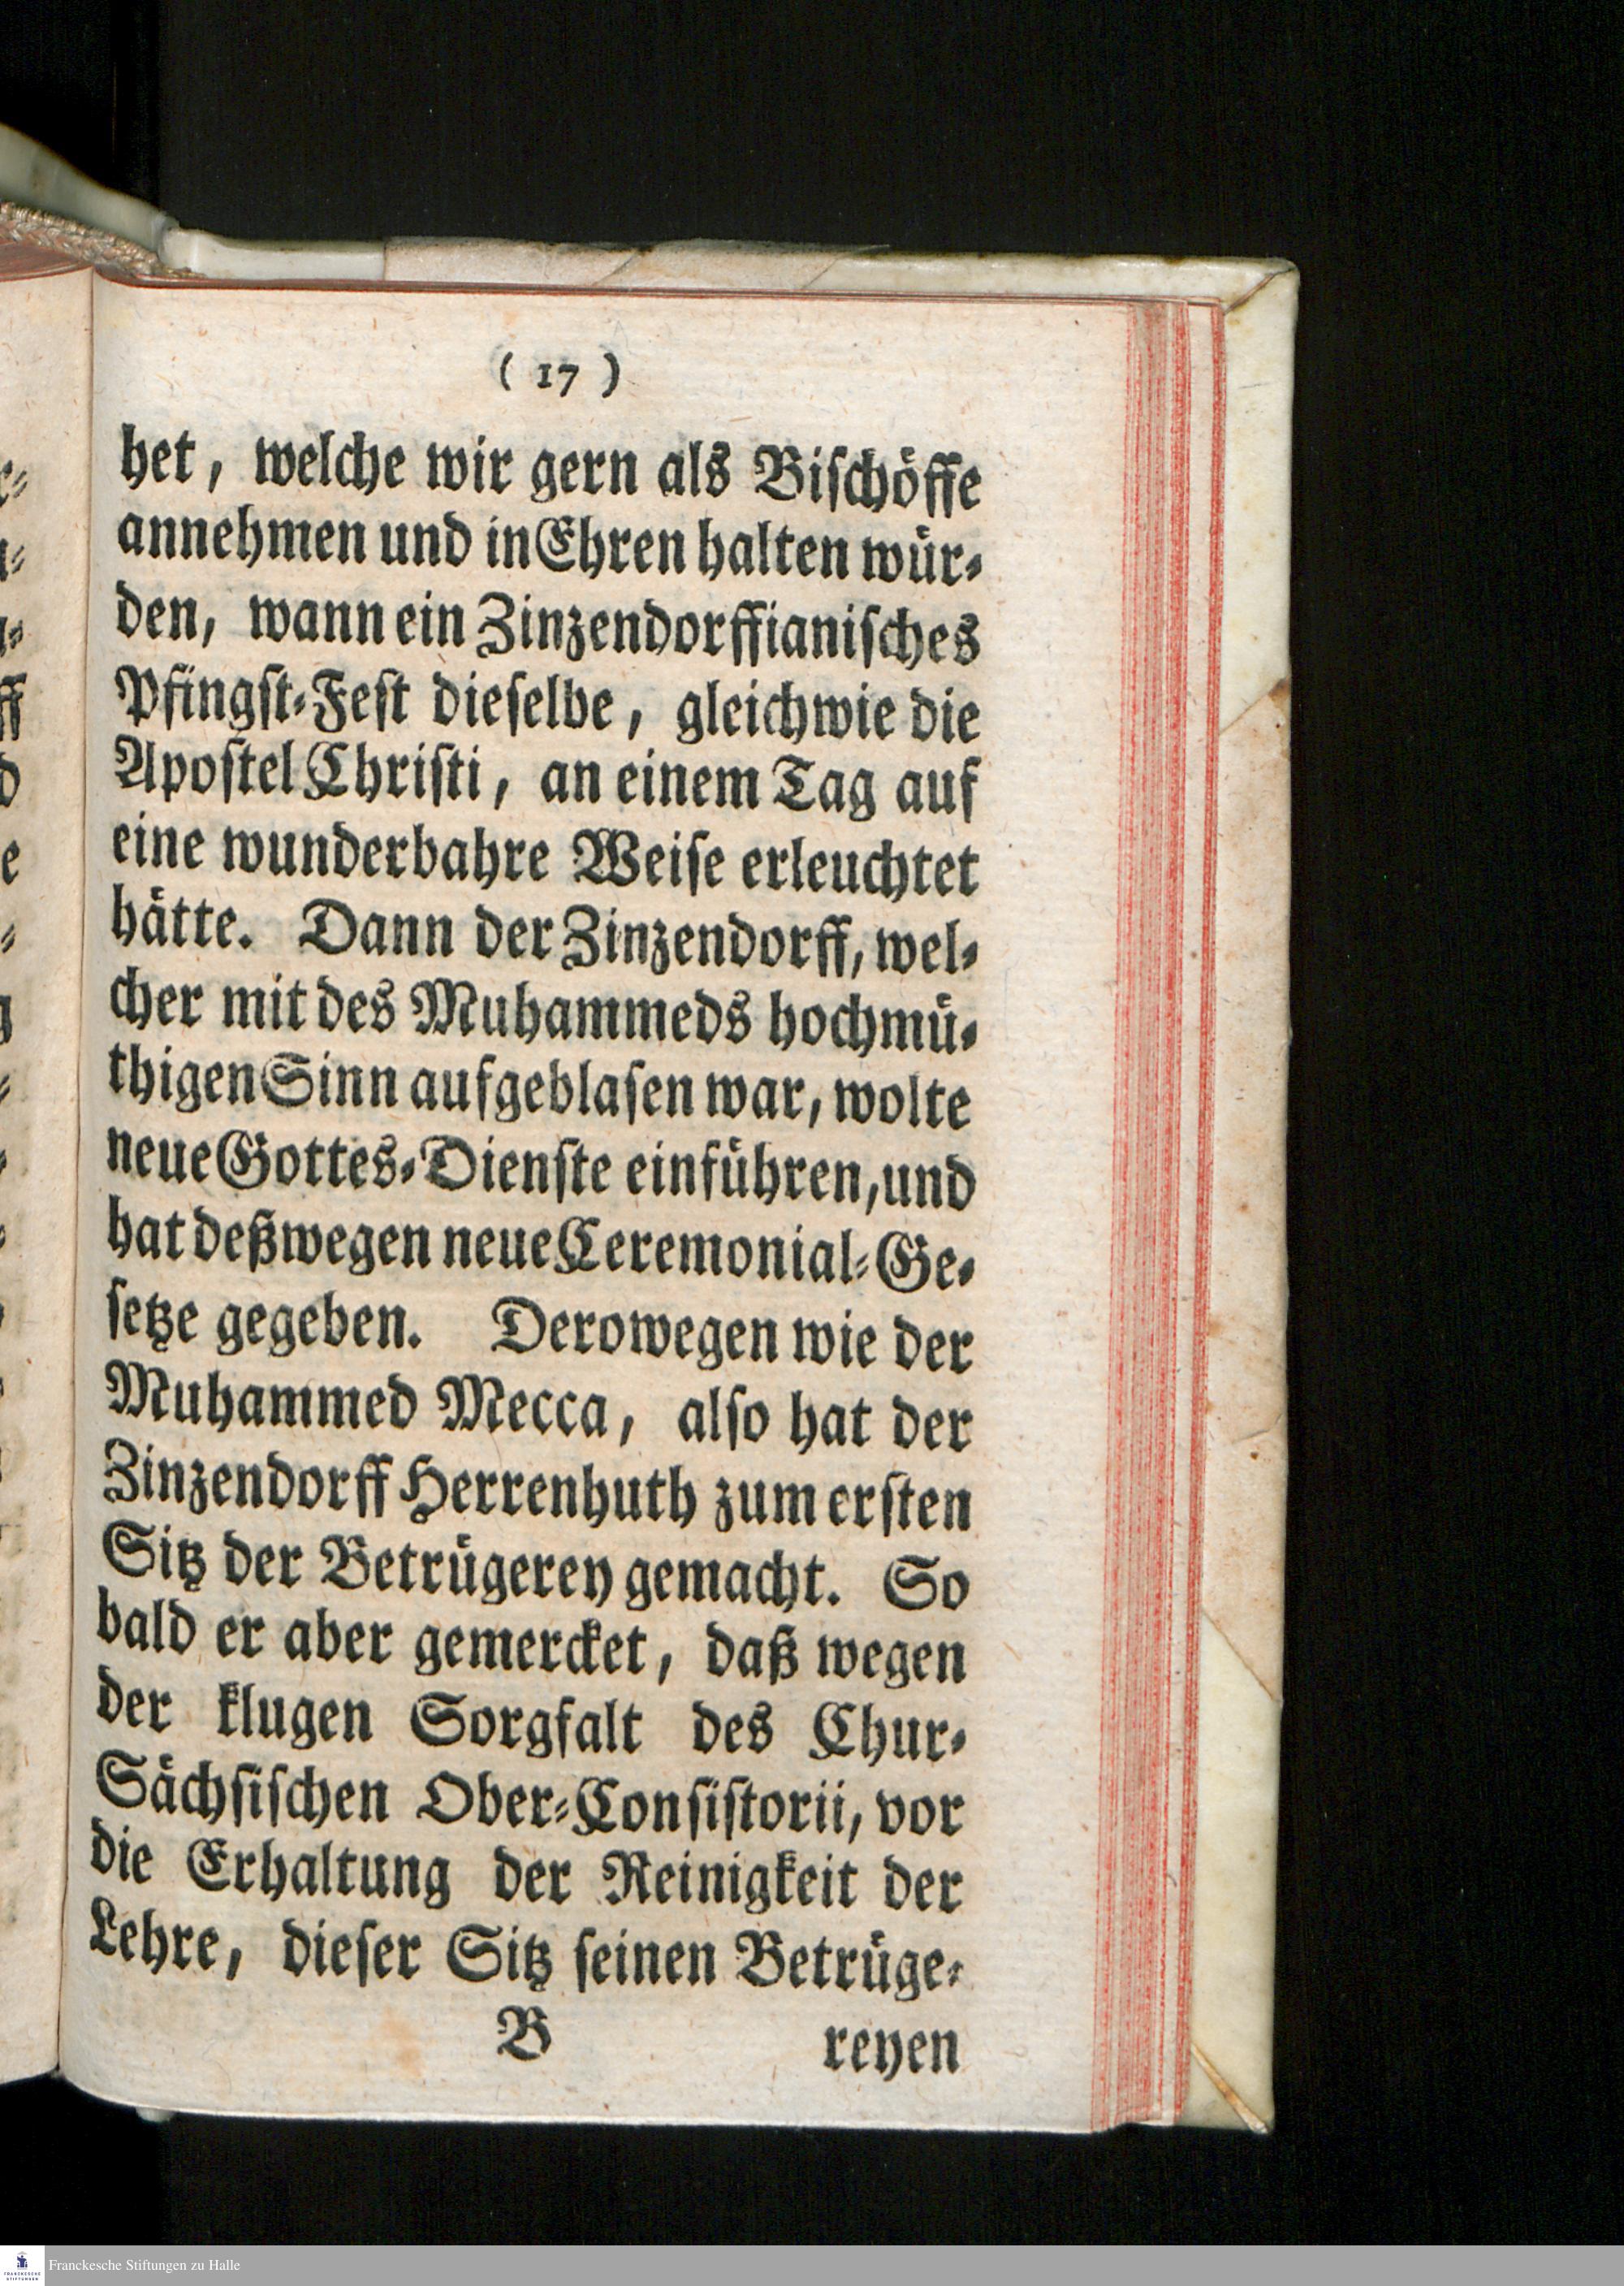 ( 17 )
het, welche wir gern als Bischöffe
annehmen und in Ehren halten wür-
den, wann ein Zinzendorffianisches
Pfingst-Fest dieselbe, gleichwie die
Apostel Christi, an einem Tag auf
eine wunderbahre Weise erleuchtet
hätte. Dann der Zinzendorff, wel-
cher mit des Muhammeds hochmü-
thigen Sinn aufgeblasen war, wolte
neue Gottes-Dienste einführen, und
hat deßwegen neue Ceremonial-Ge-
setze gegeben. Derowegen wie der
Muhammed Mecca, also hat der
Zinzendorff Herrenhuth zum ersten
Sitz der Betrügerey gemacht. So
bald er aber gemercket, daß wegen
der klugen Sorgfalt des Chur-
Sächsischen Ober-Consistorii, vor
die Erhaltung der Reinigkeit der
Lehre, dieser Sitz seinen Betrüge-
B reyen
Franckesche Stiftungen zu Halle